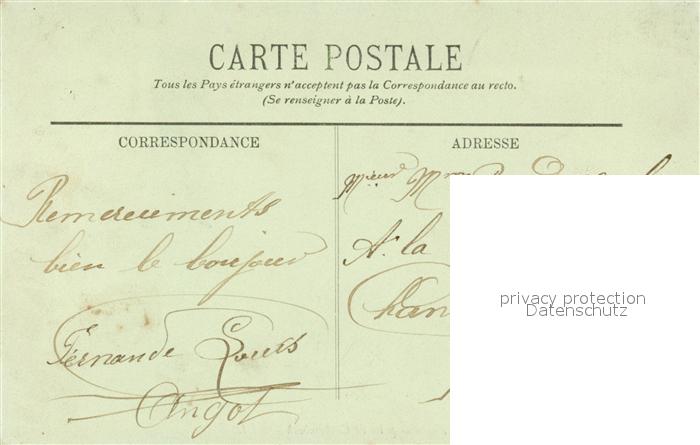 CARTE POSTALE
Tous les Pays étrangers n'acceptent pas la Correspondance au recto.
(Se renseigner à la Poste).
CORRESPONDANCE
ADRESSE
Remerciements
bien le bonjour
Fernande Louis
Angot
Mr
A la
privacy protection
Datenschutz